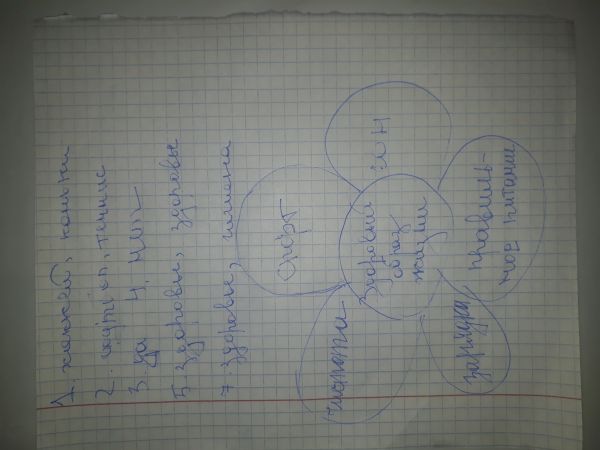 1. хоккей, коньки
2. теннис
3. да 4. мыл
5. Здоровы, здоровье
7. здоровье, гигиена
Спорт
сон
Здоровый
образ
жизни
правиль-
ное питание
зарядка
чистота